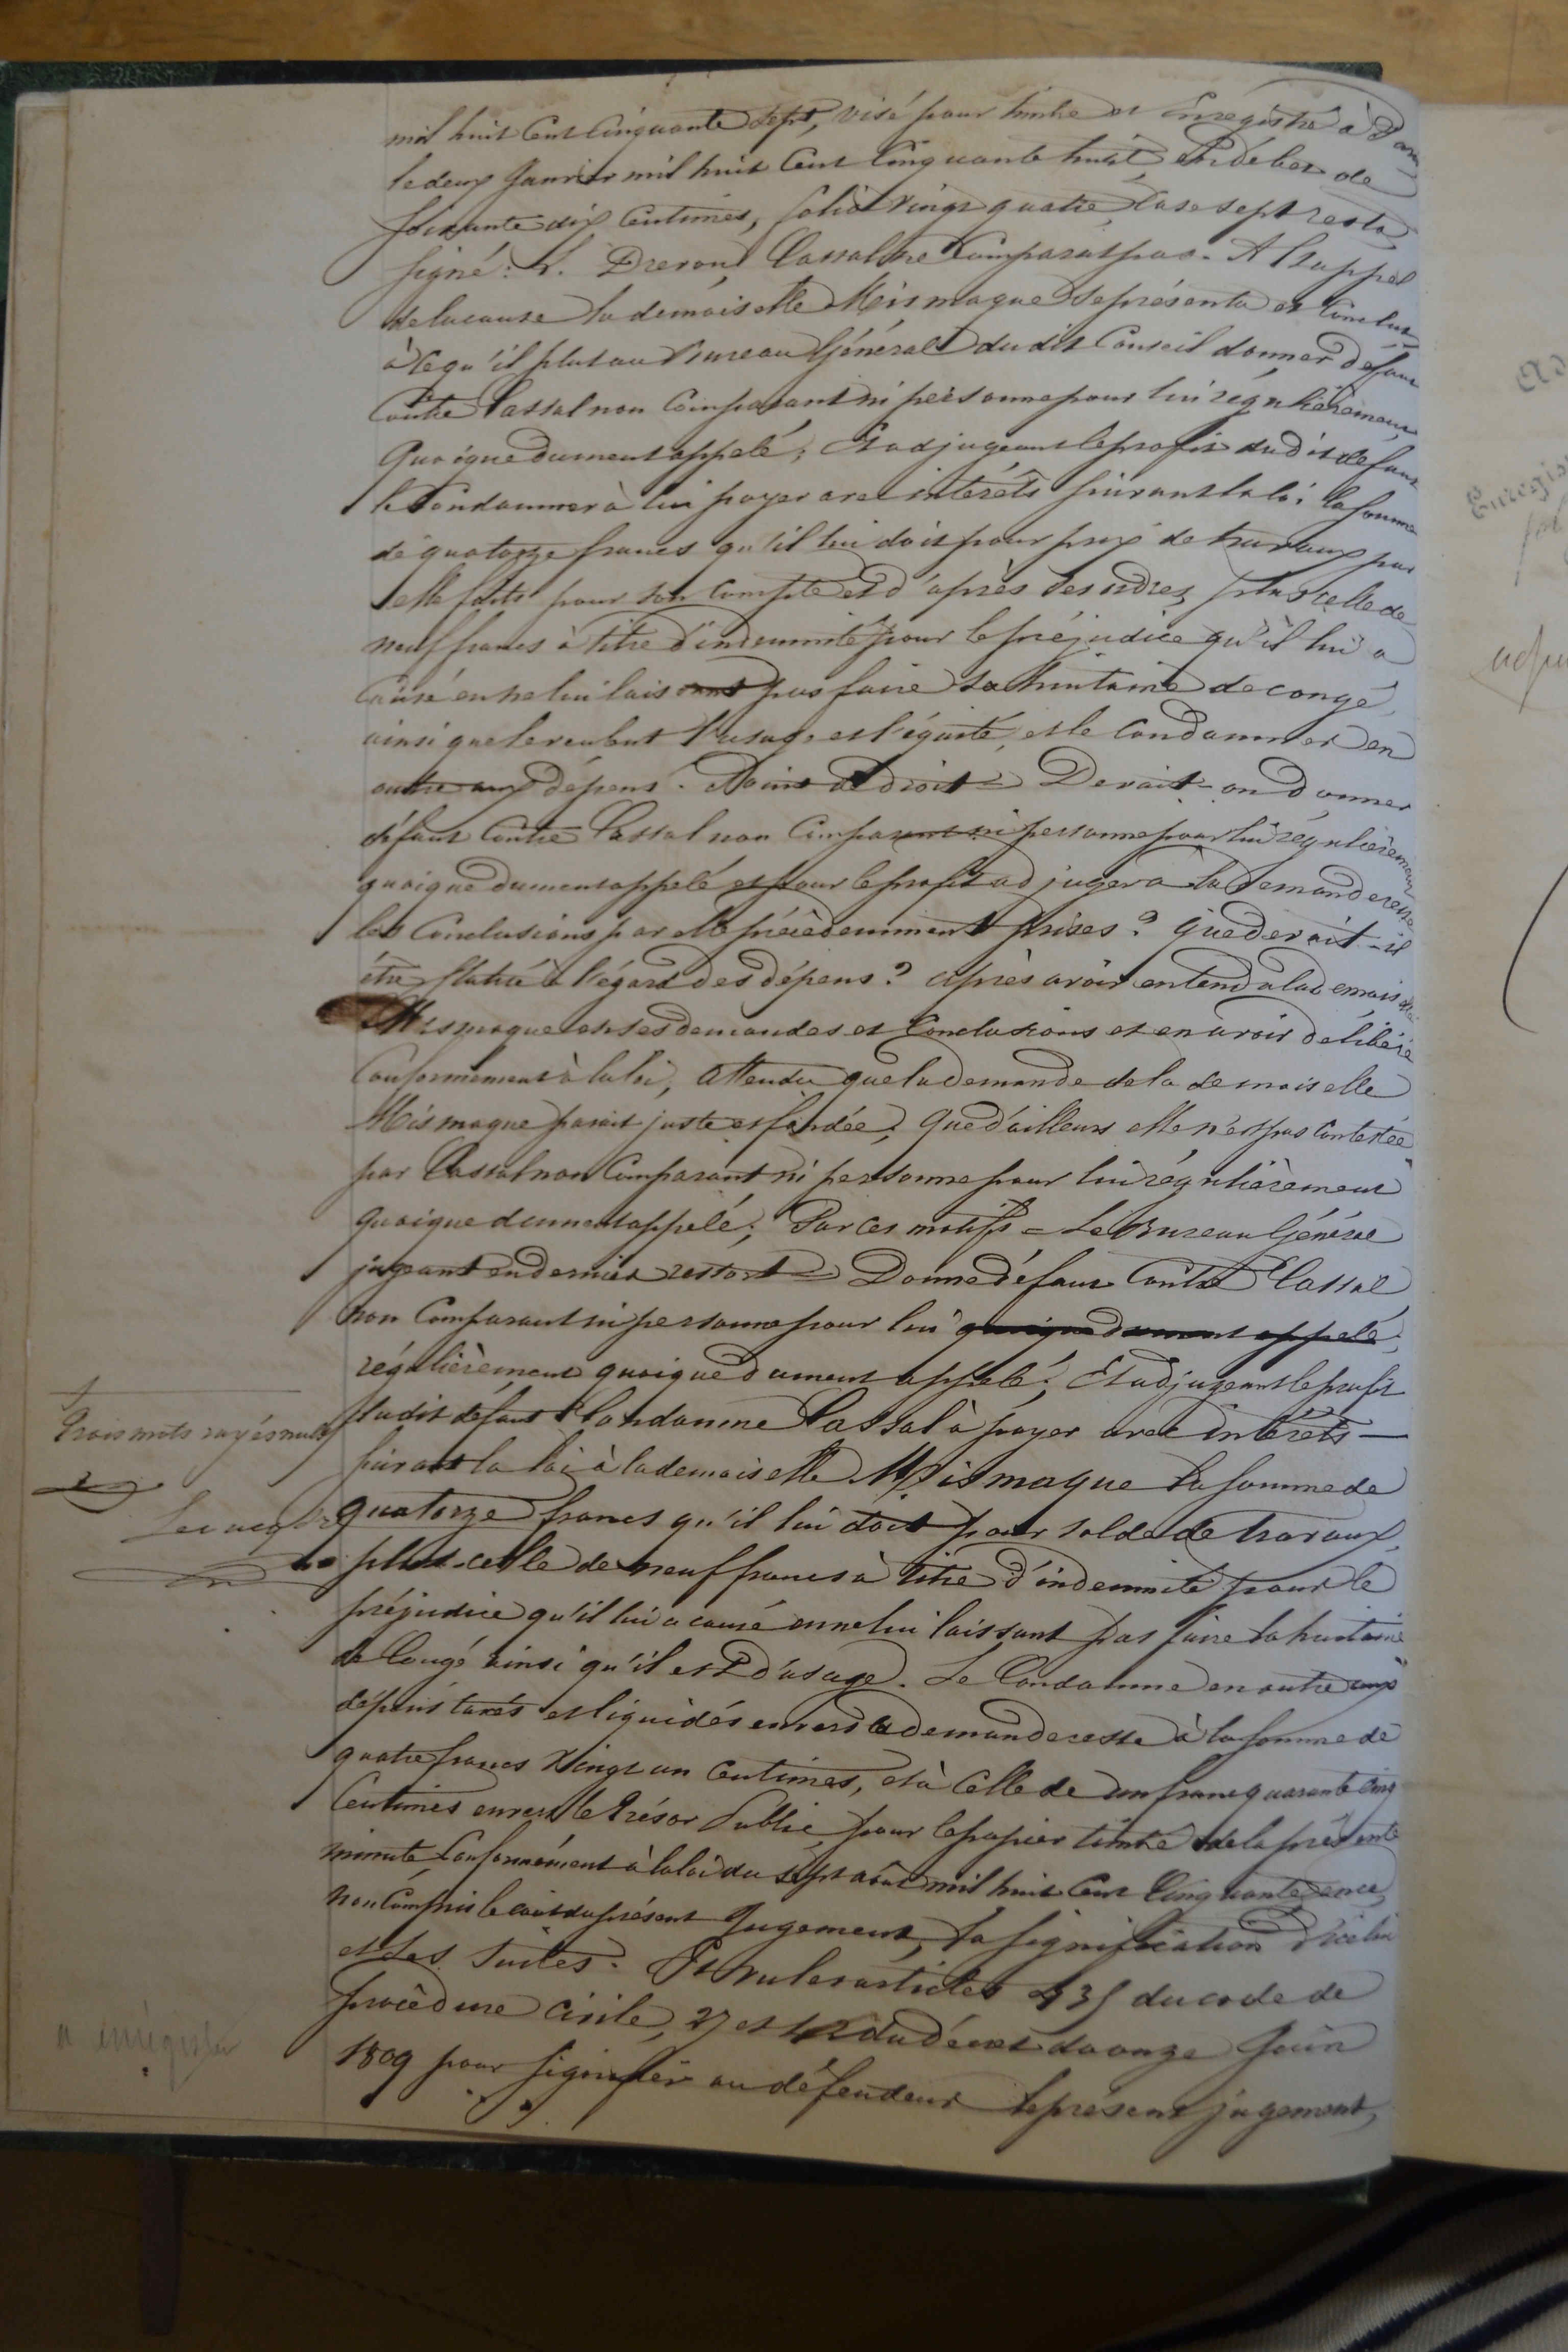 mil huit cent cinquante sept, visé pour timbre et Enregistré à Paris
le deux Janvier mil huit cent cinquante huit, En débet de
soixante dix centimes, folio vingt quatre, case sept resta,
signé: Dreron, Cassal ne Comparut pas. A l'appel
de la cause la demoiselle Mismaque se présenta et Conclut
à ce qu'il plut au Bureau Général dudit Conseil donner défaut
Contre Cassal non Comparant ni personne pour lui régulièrement
quoique dument appelé; Et adjugeant le profit dudit défaut
le Condamner à lui payer avec intérêts suivant la loi la somme
de quatorze francs qu'il lui doit pour prix de travaux par
elle faits pour son Compte et d'après ses ordres, plus celle de
neuf francs à titre d'indemnité pour le préjudice qu'il lui a
causé en ne lui laissant pas faire sa huitaine de congé,
ainsi que le veulent l'usage et l'équité, et le Condamner en
outre aux dépens. Point de droit = Devait-on donner
défaut Contre Cassal non Comparant ni personne pour lui régulièrement
quoique dument appelé et pour le profit adjuger à la demanderesse
les Conclusions par elle précédemment prises? Que devait-il
être statué à l'égard des dépens? Après avoir entendu la demoiselle
Mismaque en ses demandes et Conclusions et en avoir délibéré
Conformément à la loi, Attendu que la demande de la demoiselle
Mismaque parait juste et fondée; Que d'ailleurs elle n'est pas Contestée
par Cassal non Comparant ni personne pour lui régulièrement
quoique dument appelé; Par ces motifs = Le Bureau Général
jugeant en dernier ressort = Donne défaut Contre Cassal
non Comparant ni personne pour lui quoique dument appelé,
régulièrement quoique dument appelé; Et adjugeant le profit
dudit défaut Condamne Cassal à payer avec intérêts
suivant la loi à la demoiselle Mismaque la somme de
quatorze francs qu'il lui doit pour solde de travaux,
plus celle de neuf francs à titre d'indemnité pour le
préjudice qu'il lui a causé en ne lui laissant pas faire sa huitaine
de Congé ainsi qu'il est d'usage. Le Condamne en outre aux
dépens taxés et liquidés envers la demanderesse à la somme de
quatre francs vingt un Centimes, et à Celle de un franc quarante cinq
Centimes envers le Trésor Public, pour le papier timbré de la présente
minute, Conformément à la loi du sept août mil huit Cent Cinquante,
non Compris le coût du présent Jugement, la signification d'icelui
et ses suites. Et vu les articles 435 du code de
procédure civile, 27 et 42 du décret du onze Juin
1809 pour signifier au défendeur le présent jugement,
Trois mots rayés nuls
a enregistrer